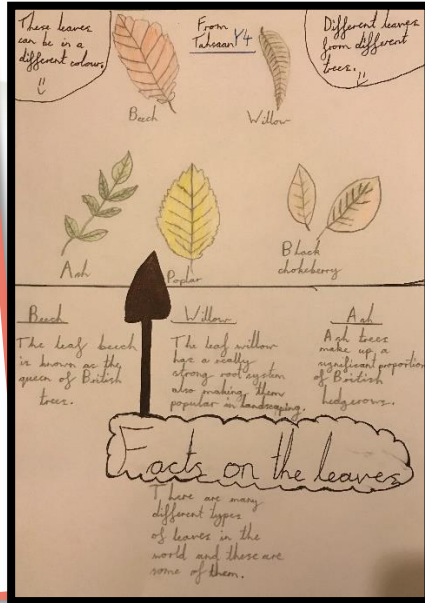 These leaves
can be in a
different colours
From
Tahsaan Y4
Different leaves
from different
trees.
Beech
Willow
Ash
Poplar
Black
chokeberry
Beech
The leaf beech
is known as the
queen of British
trees.
Willow
The leaf willow
has a really
strong root system
also making them
popular in landscaping.
Ash
Ash trees
make up a
significant proportion
of British
hedgerows.
Facts on the leaves
There are many
different types
of leaves in the
world and these are
some of them.